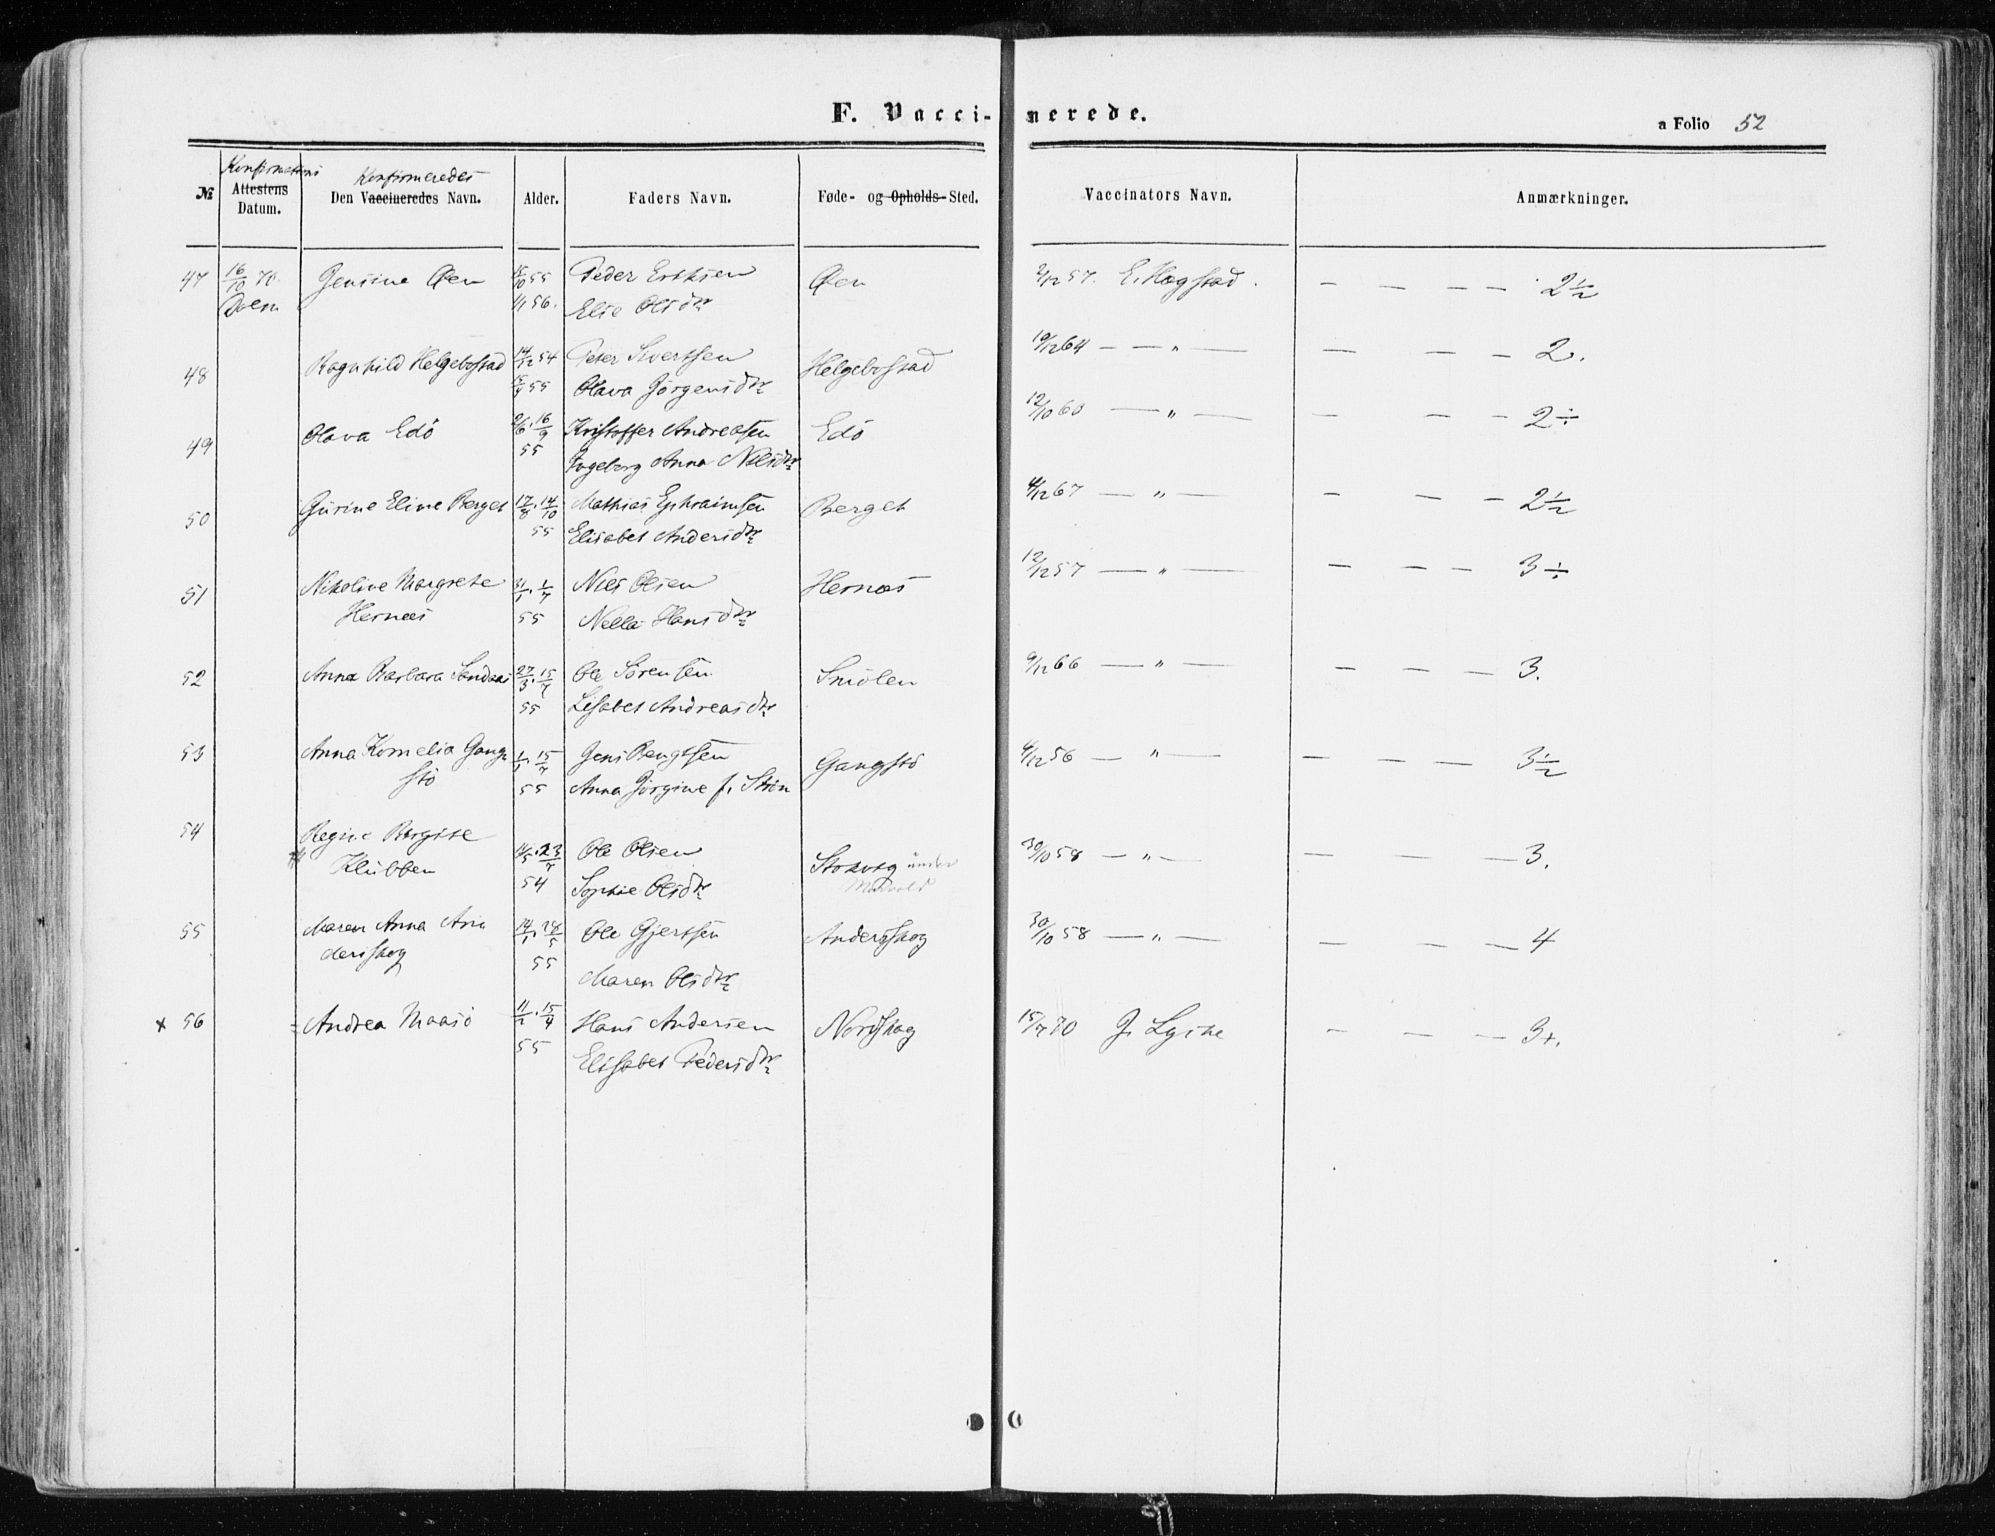 F. Vaccinerede.
a Folio 52
Konfirmations Konfirmeredes
№ Attestens Datum. Den Vaccineredes Navn. Alder. Faders Navn. Føde- og Opholds-Sted. Vaccinators Navn. Anmærkninger.
47 16/10 70 Jensine Øen 15/10 55 Peder Eriksen Øen 2/12 57. E. Hagstad. — — — — 2½
1/1 56. Elie Olsdtr
48 Ragnhild Helgebostad 14/12 54 Peter Sivertsen Helgebostad 10/12 64 — — " — — — — 2.
15/4 55 Olava Jörgensdtr
49 Olava Edö 2/6. 16/9 Kristoffer Andreasen Edö 12/10 60 — " — — — — 2÷
55 Ingeborg Anna Nilsdtr
50 Gurine Eline Berget 17/8. 14/10 Mathias Ephraimsen Berget 4/12 67 — " — — — — 2½
55 Elisabet Andersdtr
51 Nikoline Margrete 31/1. 1/7 Niels Olsen Hernæs 12/12 57 — " — — — — 3÷
Hernæs 55 Nella Hansdtr
52 Anna Barbara 27/3. 15/7 Ole Sörensen Smölen 9/12 66 — " — — — — 3.
55 Lisabet Andreasdtr
53 Anna Kornelia Gang- 1/1. 15/7 Jens Bengtsen Gangstö 4/12 56 — " — — — — — 3½
stö 55 Anna Jörgine f. Ström
54 Regine Bergite
Klubben 14/5. 23/7 Ole Olsen Storvog under 30/10 58 — " — — — — 3.
54 Sophie Olsdtr
55 Maren Anna An- 14/1. 28/5 Ole Gjertsen Andersskog 30/10 58 — " — — — — 4
dersskog 55
Maren Olsdtr
x 56 Andrea Maasö 11/2. 15/4 Hans Andersen Nordskog 15/7 70 J. Lycke — — — 3+.
55 Elisabet Pedersdtr